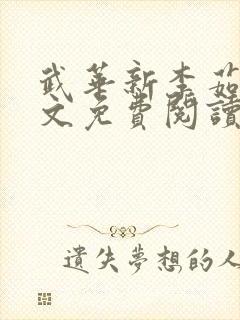 武華新李茹
文免費閱讀
遺失夢想的人